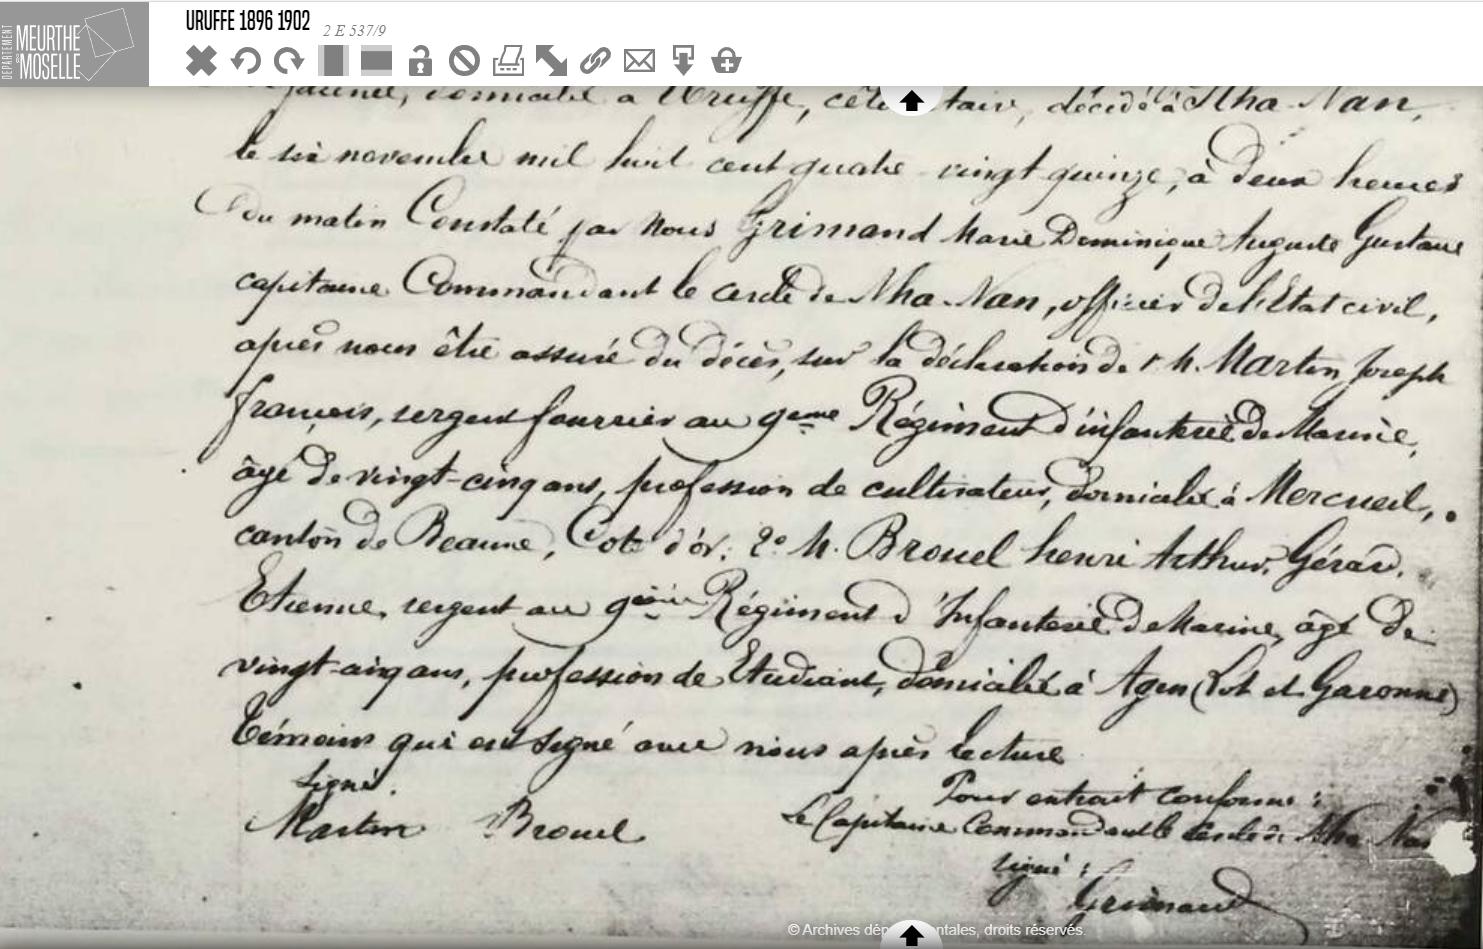 DÉPARTEMENT MEURTHE & MOSELLE
URUFFE 1896 1902 2 E 537/9
domicilié à Uruffe, célibataire, décédé à Nha-Nan,
le six novembre mil huit cent quatre-vingt quinze, à deux heures
du matin Constaté par Nous Grimaud Marie Dominique Auguste Gustave
capitaine Commandant le cercle de Nha-Nan, officier de l'Etat civil,
après nous être assuré du décès, sur la déclaration de 1° M. Martin Joseph
françois, sergent fourrier au 9eme Régiment d'infanterie de Marine,
âgé de vingt-cinq ans, profession de cultivateur, domicilié à Mercueil,
canton de Beaune, Cote d'or. 2° M. Brouel henri Arthur, Gérard,
Etienne, sergent au 9eme Régiment d'Infanterie de Marine, âgé de
vingt-cinq ans, profession de Etudiant, domicilié à Agen (Lot et Garonne)
témoins qui ont signé avec nous après lecture
signé.
Martin Brouel
Pour extrait conforme :
Le Capitaine Commandant le Cercle de Nha Nan
signé :
Grimaud
© Archives départementales, droits réservés.